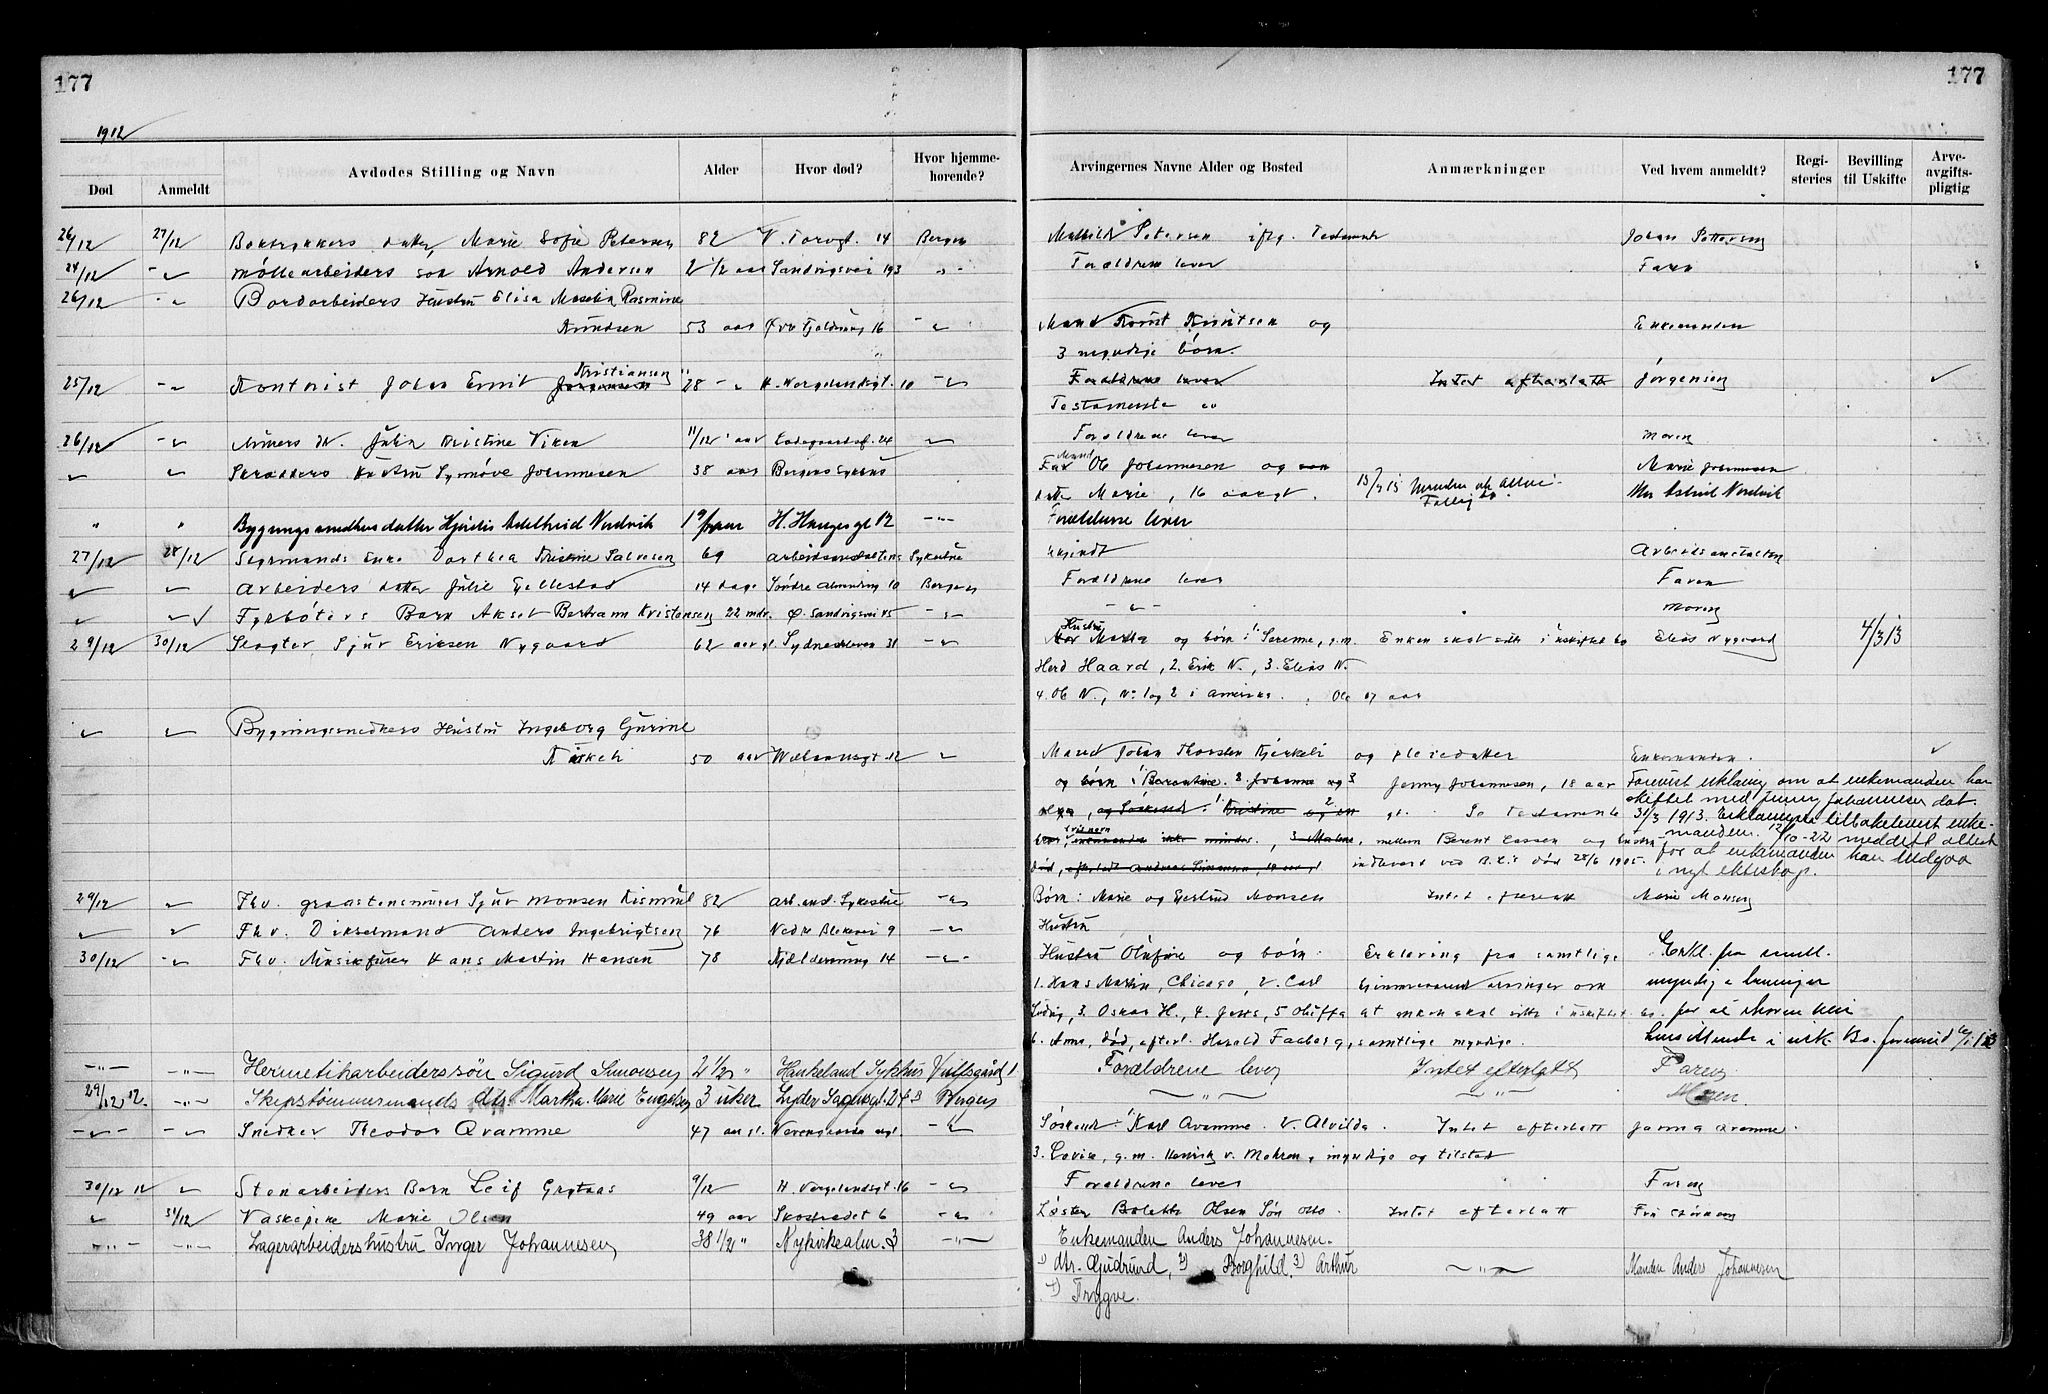 177
177
1912
Død
Anmeldt
Avdødes Stilling og Navn
Alder
Hvor død?
Hvor hjemme-
hørende?
Arvingernes Navne Alder og Bosted
Anmærkninger
Ved hvem anmeldt?
Regi-
steries
Bevilling
til Uskifte
Arve-
avgifts-
pligtig
26/12 27/12 datter Marie Sofie Petersen 82 V. Torvgt. 14 Bergen Mathilde Petersen iflg. Testamente Johan Pettersen
24/12 Møllearbeiders søn Arnold Andersen 2 1/2 aar Sandvigsvei 193 Forældrene lever Faren
26/12 Bordarbeiders Hustru Elisa Rasmine
Knudsen 53 aar Øvre Fjeldsmug 16 Mand Knut Knutsen og Enkemanden
3 myndige børn.
Kristiansen
25/12 Kontorist Johan Ernst Jørgensen 28 H. Wergelandsgt. 10 Forældrene lever Intet efterlatt Jørgensen
Testamente
26/12 Murers dtr. Julia Kristine Viken 11/12 aar Ladegaardsgt. 24 Forældrene lever Moren
Skrædders Hustru Synnøve Johannesen 38 aar Bergens Sykehus Mand Ole Johannesen og Marie Johannesen
datter Marie, 16 aar gl. 13/9 13
Bygningssnedkers datter Hjørdis Adelheid Nordvik 1 9/12 aar H. Haugesgt 12 Forældrene lever Astrid Nordvik
27/12 28/12 Styrmands Enke Dorthea Kristine Salvesen 69 Arbeidsanstaltens Sykestue Ukjendt Arbeidsanstalten
Arbeiders datter Julie Gjellestad 14 dage Søndre Almening 10 Bergen Forældrene lever Faren
Fyrbøters Barn Aksel Bertram Kristensen 22 mdr. Ø. Sandvigsvei 45 Moren
29/12 30/12 Slagter Sjur Eriksen Nygaard 62 aar gl. Sydneskleven 31 Hustru Martha og børn: 1. Serene, g.m. Enken skal sitte i uskiftet bo Elias Nygaard 4/3 13
Herd Haaard, 2. Erik N., 3. Elias N.
4. Ole N., No 1 og 2 i Amerika. Ole 17 aar
Bygningssnedkers Hustru Ingeborg Gurine
Kirkeli 50 aar Welhavensgt. 12 Mand Johan Thorsten Kjerkeli og pleiedatter Enkemanden.
og børn: 1 Berentine. 2. Johanne og 3 Jenny Johannesen, 18 aar Foreviist erklæring om at enkemanden har
og Søskende: 1 Kristine 2. gl. Se Testamente skiftet med Jenny Johannesen dat.
31/3 1913. Erklæringen tilbakelevert enke-
3 Malene, mellem Berent Lassen og Hustru manden. 12/10-22 meddelt attest
død, efterladt Andreas Simonsen, indlevert ved dat 28/6 1905. for at enkemanden kan indgaa
i nyt ekteskap.
29/12 Fhv. graastensmurer Sjur Monsen Kismul 82 arb.anst. Sykestue Børn: Marie og Gjertrud Monsen Intet efterlatt Marie Monsen
Fhv. Dikselmand Anders Ingebrigtsen 76 Nedre Blekevei 9 Hustru
30/12 Fhv. Musikfører Hans Martin Hansen 78 Kjeldersmug 14 Hustru Olufine og børn: Erklæring fra samtlige Erkl. fra samtl.
1. Hans Martin, Chicago, 2. Carl hjemmeværende arvinger om myndige arvinger
Ludvig, 3. Oskar H., 4. Jens, 5 Oluffa at enken skal sitte i uskiftet bo. for at Moren kan
6. Anna, død, efterl. Harald Faaberg, samtlige myndige. hensidde i usk. Bo. foreviist
Hermetikarbeiderssøn Sigurd Simonsen 2 1/2 " Haukeland Sykhus Vulfsgård 1 Forældrene lever Intet efterlatt Faren
29/12 12. Skipstømmermands dtr. Martha Marie Engelsen 3 uker Lyder Sagensgt. 24 B Bergen Moren.
Snedker Theodor Qvamme 47 aar gl. Søskende: 1 Karl Qvamme. 2. Alvilda. Intet efterlatt Qvamme.
3. Lovise, g.m. Henrik v. Mehren, myndige og tilstede
30/12 12 Stenarbeiders Barn Leif Grytaas 9/12 H. Wergelandsgt. 16 Forældrene lever Faren
31/12 Vaskepike Marie Olsen 49 aar Skostrædet 6 Søster Bolette Olsen Søn Otto Intet efterlatt Fru
Lagerarbeidershustru Inger Johannesen 38 1/2 " Nykirkealm. 3 Enkemanden Anders Johannesen.
1) dtr. Gudrund, 2) Borghild, 3) Arthur Manden Anders Johannesen
4) Trygve.